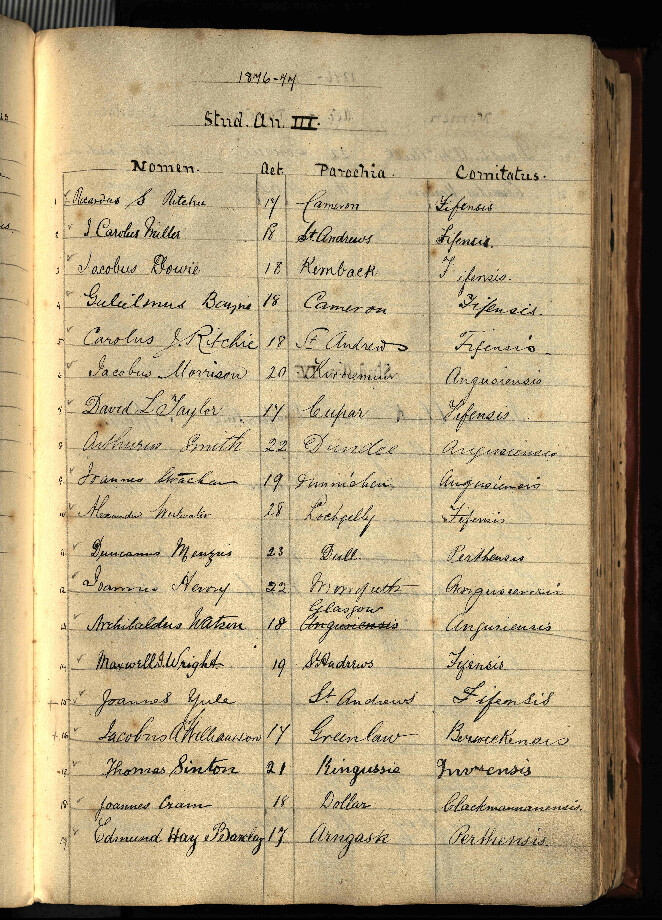 1876-77
Stud. An. III.
Nomen. Aet. Parochia. Comitatus.
1 Ricardus S Ritchie 17 Cameron Fifensis
2 J Carolus Miller 18 St Andrews Fifensis.
3 Jacobus Dowie 18 Kemback Fifensis.
4 Gulielmus Bayne 18 Cameron Fifensis.
5 Carolus J. Ritchie 18 St Andrews Fifensis
6 Jacobus Morrison 20 Kirriemuir Angusiensis
David L Taylor 17 Cupar Fifensis
8 Arthurus Smith 22 Dundee Angusiensis
9 Joannes Strachan 19 Dunnichen Angusiensis
10 Alexander 28 Lochgelly Fifensis
11 Duncanus Menzies 23 Dull Perthensis
12 Joannes Henry 22 Angusiensis
Glasgow
Archibaldus Watson 18 Angusiensis Angusiensis
14 Maxwell J. Wright 19 St Andrews Fifensis
+ 15 Joannes Yule St Andrews Fifensis
+ 16 Jacobus A Williamson 17 Greenlaw Berwickensis
Thomas Sinton 21 Kingussie
18 Joannes Cram 18 Dollar Clackmannanensis.
19 Edmund Hay Barclay 17 Arngask Perthensis